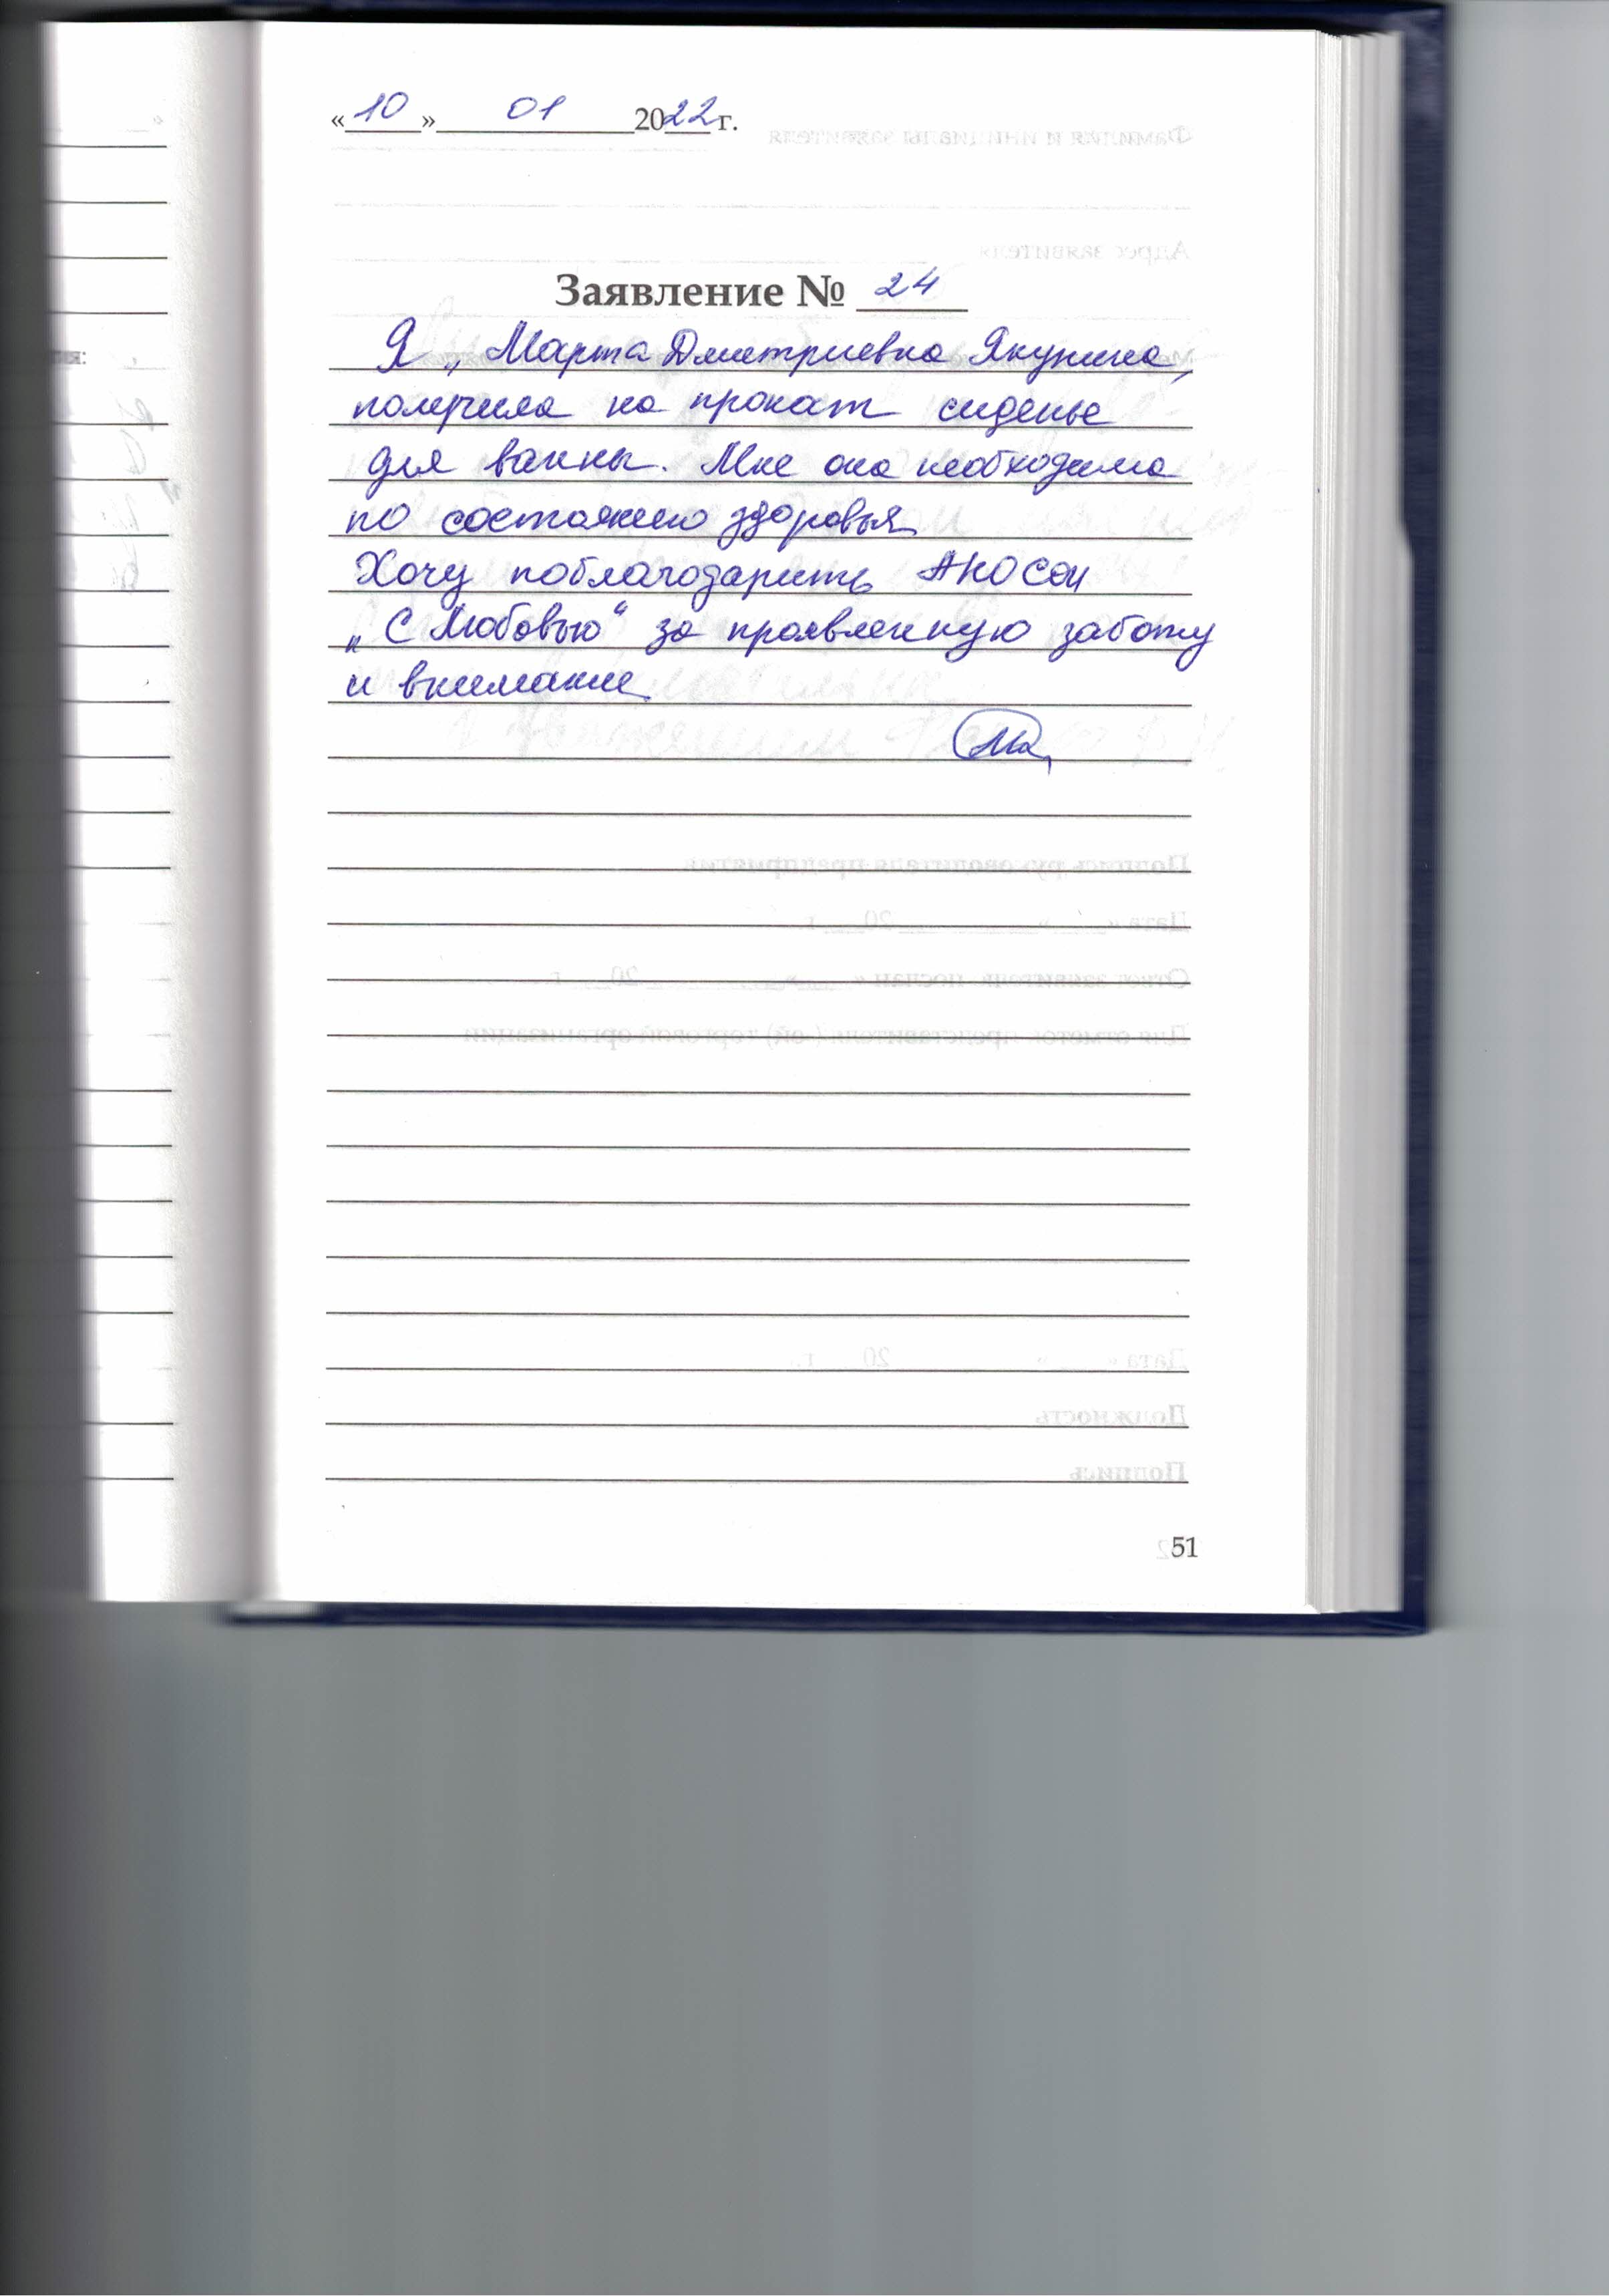 «10» 01 2022 г.
Заявление № 24
Я, Марта Дмитриевна Якунина,
получила на прокат сиденье
для ванны. Мне она необходима
по состоянию здоровья
Хочу поблагодарить АНО СОН
„С Любовью“ за проявленную заботу
и внимание
51